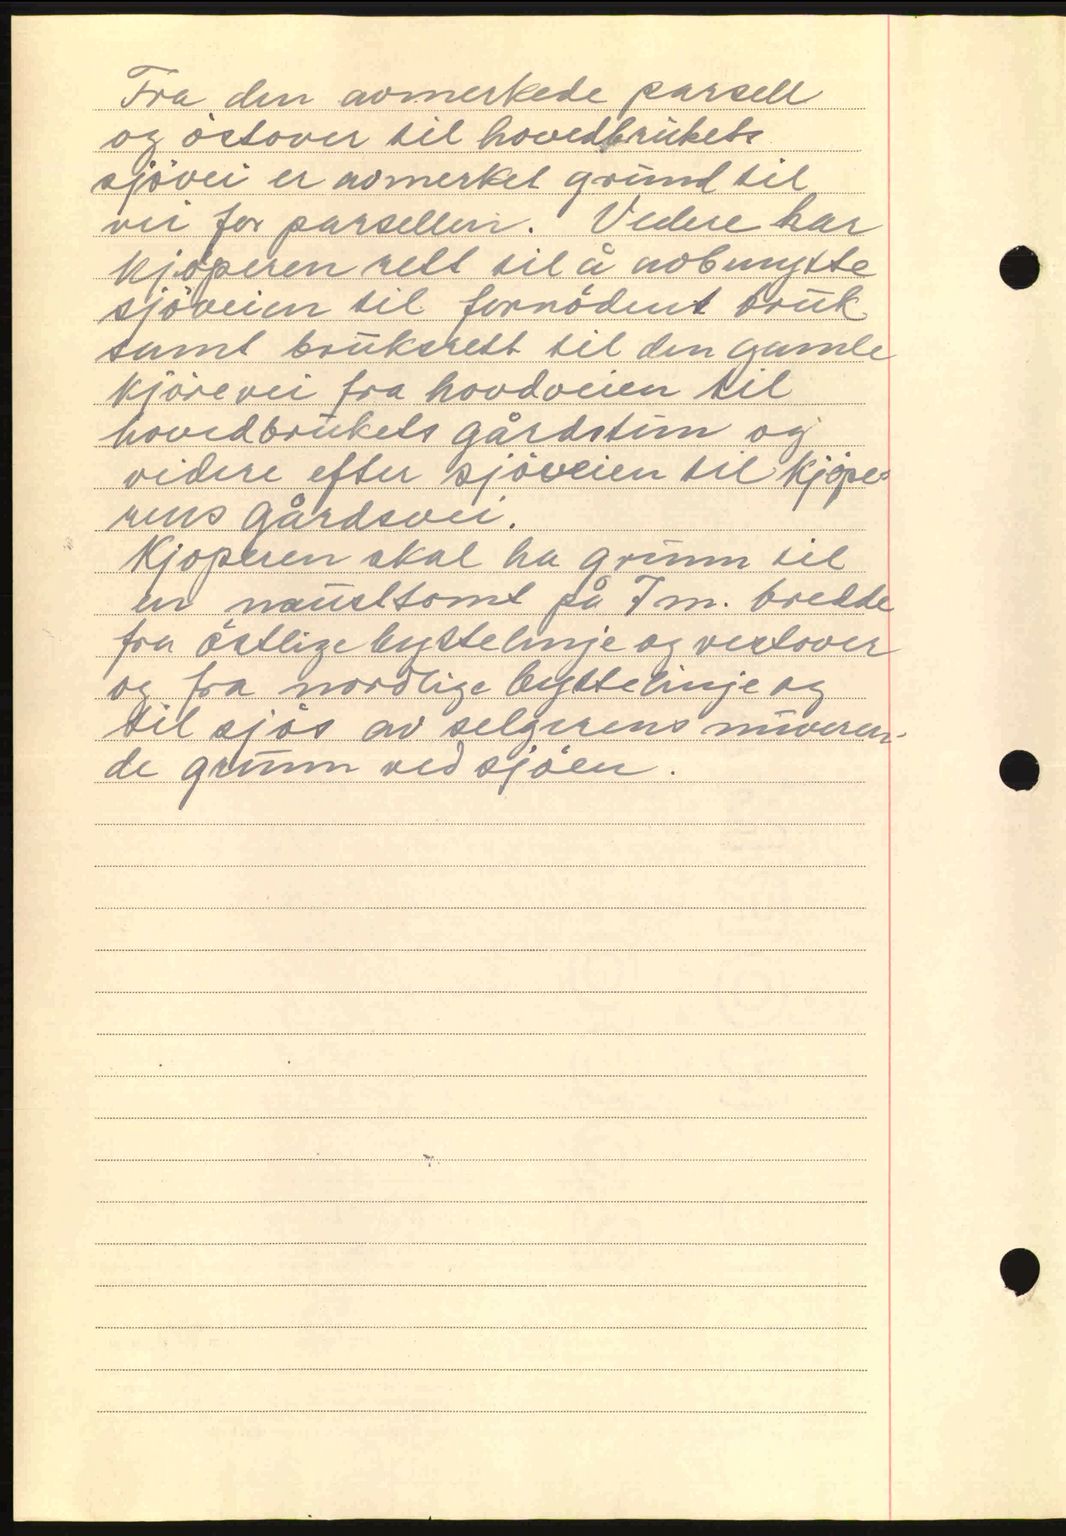 Fra den avmerkede parsell
og östover til hovedbrukets
sjövei er avmerket grund til
vei for parsellen. Videre har
kjöperen rett til å avbenytte
sjöveien til fornödent bruk
samt bruksrett til den gamle
kjörevei fra hovdveien til
hovedbrukets gårdstun og
videre efter sjöveien til kjöpe-
rens gårdsvei.
Kjoperen skal ha grunn til
en nausttomt på 7 m. bredde
fra östlige byttelinje og vestover
og fra nordlige byttelinje og
til sjös av selgerens nuveren-
de grunn ved sjöen.